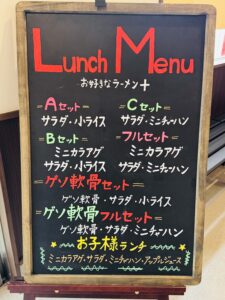 Lunch Menu
お好きなラーメン+
=Aセット=
サラダ・小ライス
=Bセット=
ミニカラアゲ
サラダ・小ライス
=Cセット=
サラダ・ミニチャーハン
=フルセット=
ミニカラアゲ
サラダ・ミニチャーハン
=ゲソ軟骨セット=
ゲソ軟骨・サラダ・小ライス
=ゲソ軟骨フルセット=
ゲソ軟骨・サラダ・ミニチャーハン
お子様ランチ
ミニカラアゲ・サラダ・ミニチャーハン・アップルジュース